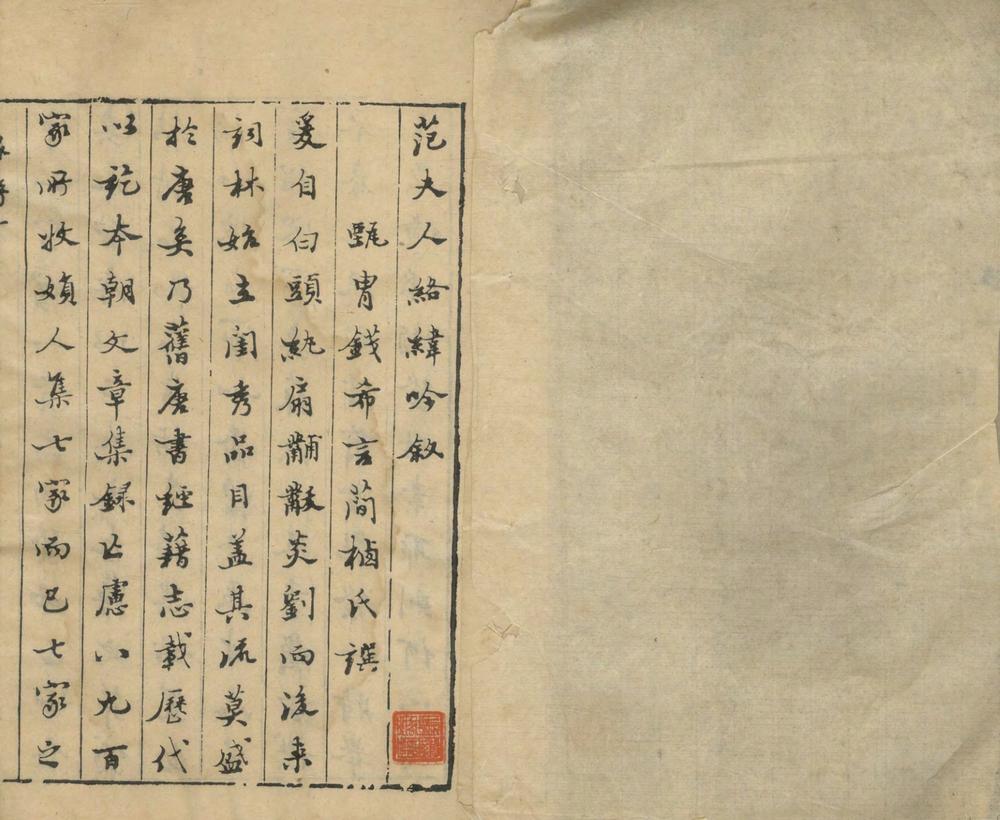 范夫人絡緯吟敘
甄胄錢希言簡棲氏譔
爰自白頭紈扇黼黻炎劉而後来
詞林始立閨秀品目盖其流莫盛
於唐矣乃舊唐書經藉志載歷代
以訖本朝文章集録止慮八九百
家所收婦人集七家而已七家之